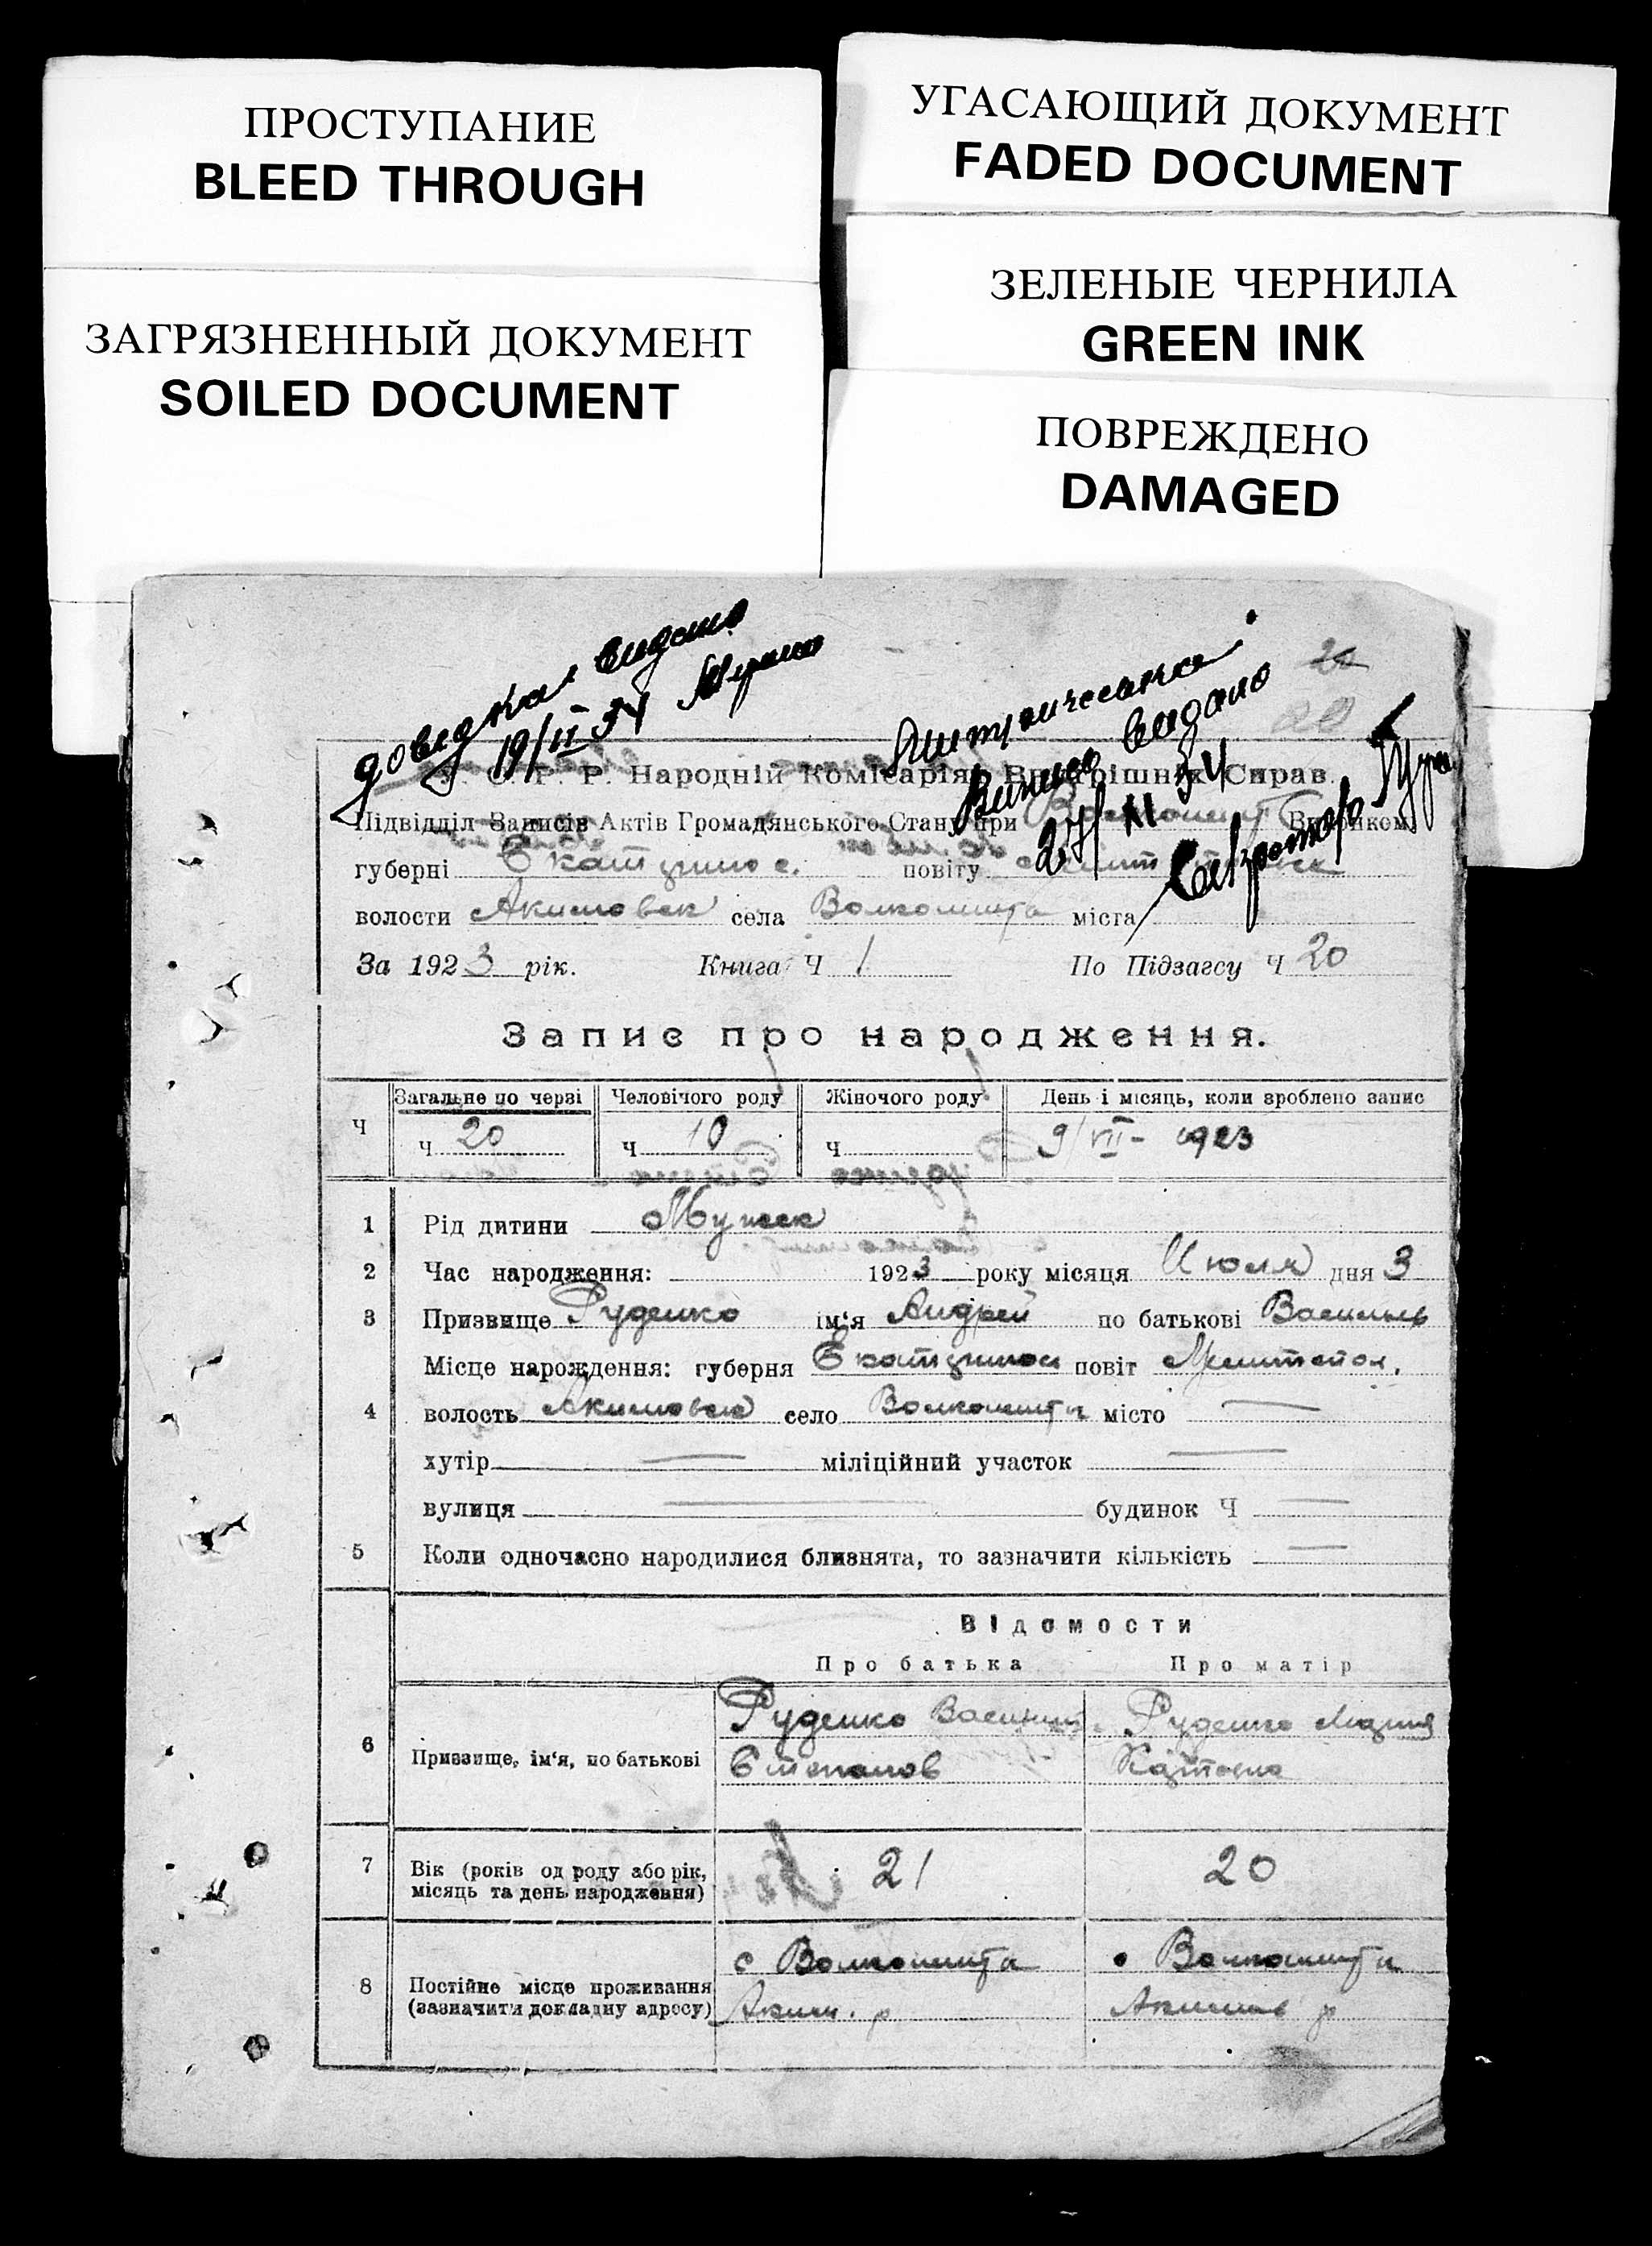 ПРОСТУПАНИЕ
BLEED THROUGH
ЗАГРЯЗНЕННЫЙ ДОКУМЕНТ
SOILED DOCUMENT
УГАСАЮЩИЙ ДОКУМЕНТ
FADED DOCUMENT
ЗЕЛЕНЫЕ ЧЕРНИЛА
GREEN INK
ПОВРЕЖДЕНО
DAMAGED
довідка видана
19/II 34
видано
27/XI 34
Секретарь
20
20
У. С. Р. Р. Народній Комісаріят Внутрішніх Справ.
Підвідділ Записів Актів Громадянського Стану при Виконком
губерні Екатеринос. повіту
волости Акимовск села міста
За 1923 рік. Книга Ч 1 По Підзагсу Ч 20
Запис про народження.
Загальне по черзі Человічого роду Жіночого роду День і місяць, коли зроблено запис
Ч Ч 20 Ч 10 Ч 9/VII - 1923
1 Рід дитини Мужск
2 Час народження: 1923 року місяця Июля дня 3
3 Призвище Руденко ім'я Андрей по батькові Василь
Місце нарождення: губерня Екатеринос повіт Мелитопол.
4 волость Акимовск село місто —
хутір — міліційний участок —
вулиця — будинок Ч —
5 Коли одночасно народилися близнята, то зазначити кількість —
Відомости
Про батька Про матір
6 Призвище, ім'я, по батькові Руденко Василий Руденко Мария
Степанов
7 Вік (років од роду або рік, місяць та день народження) 21 20
8 Постійне місце проживання (зазначити докладну адресу) с
Аким. р Акимов р